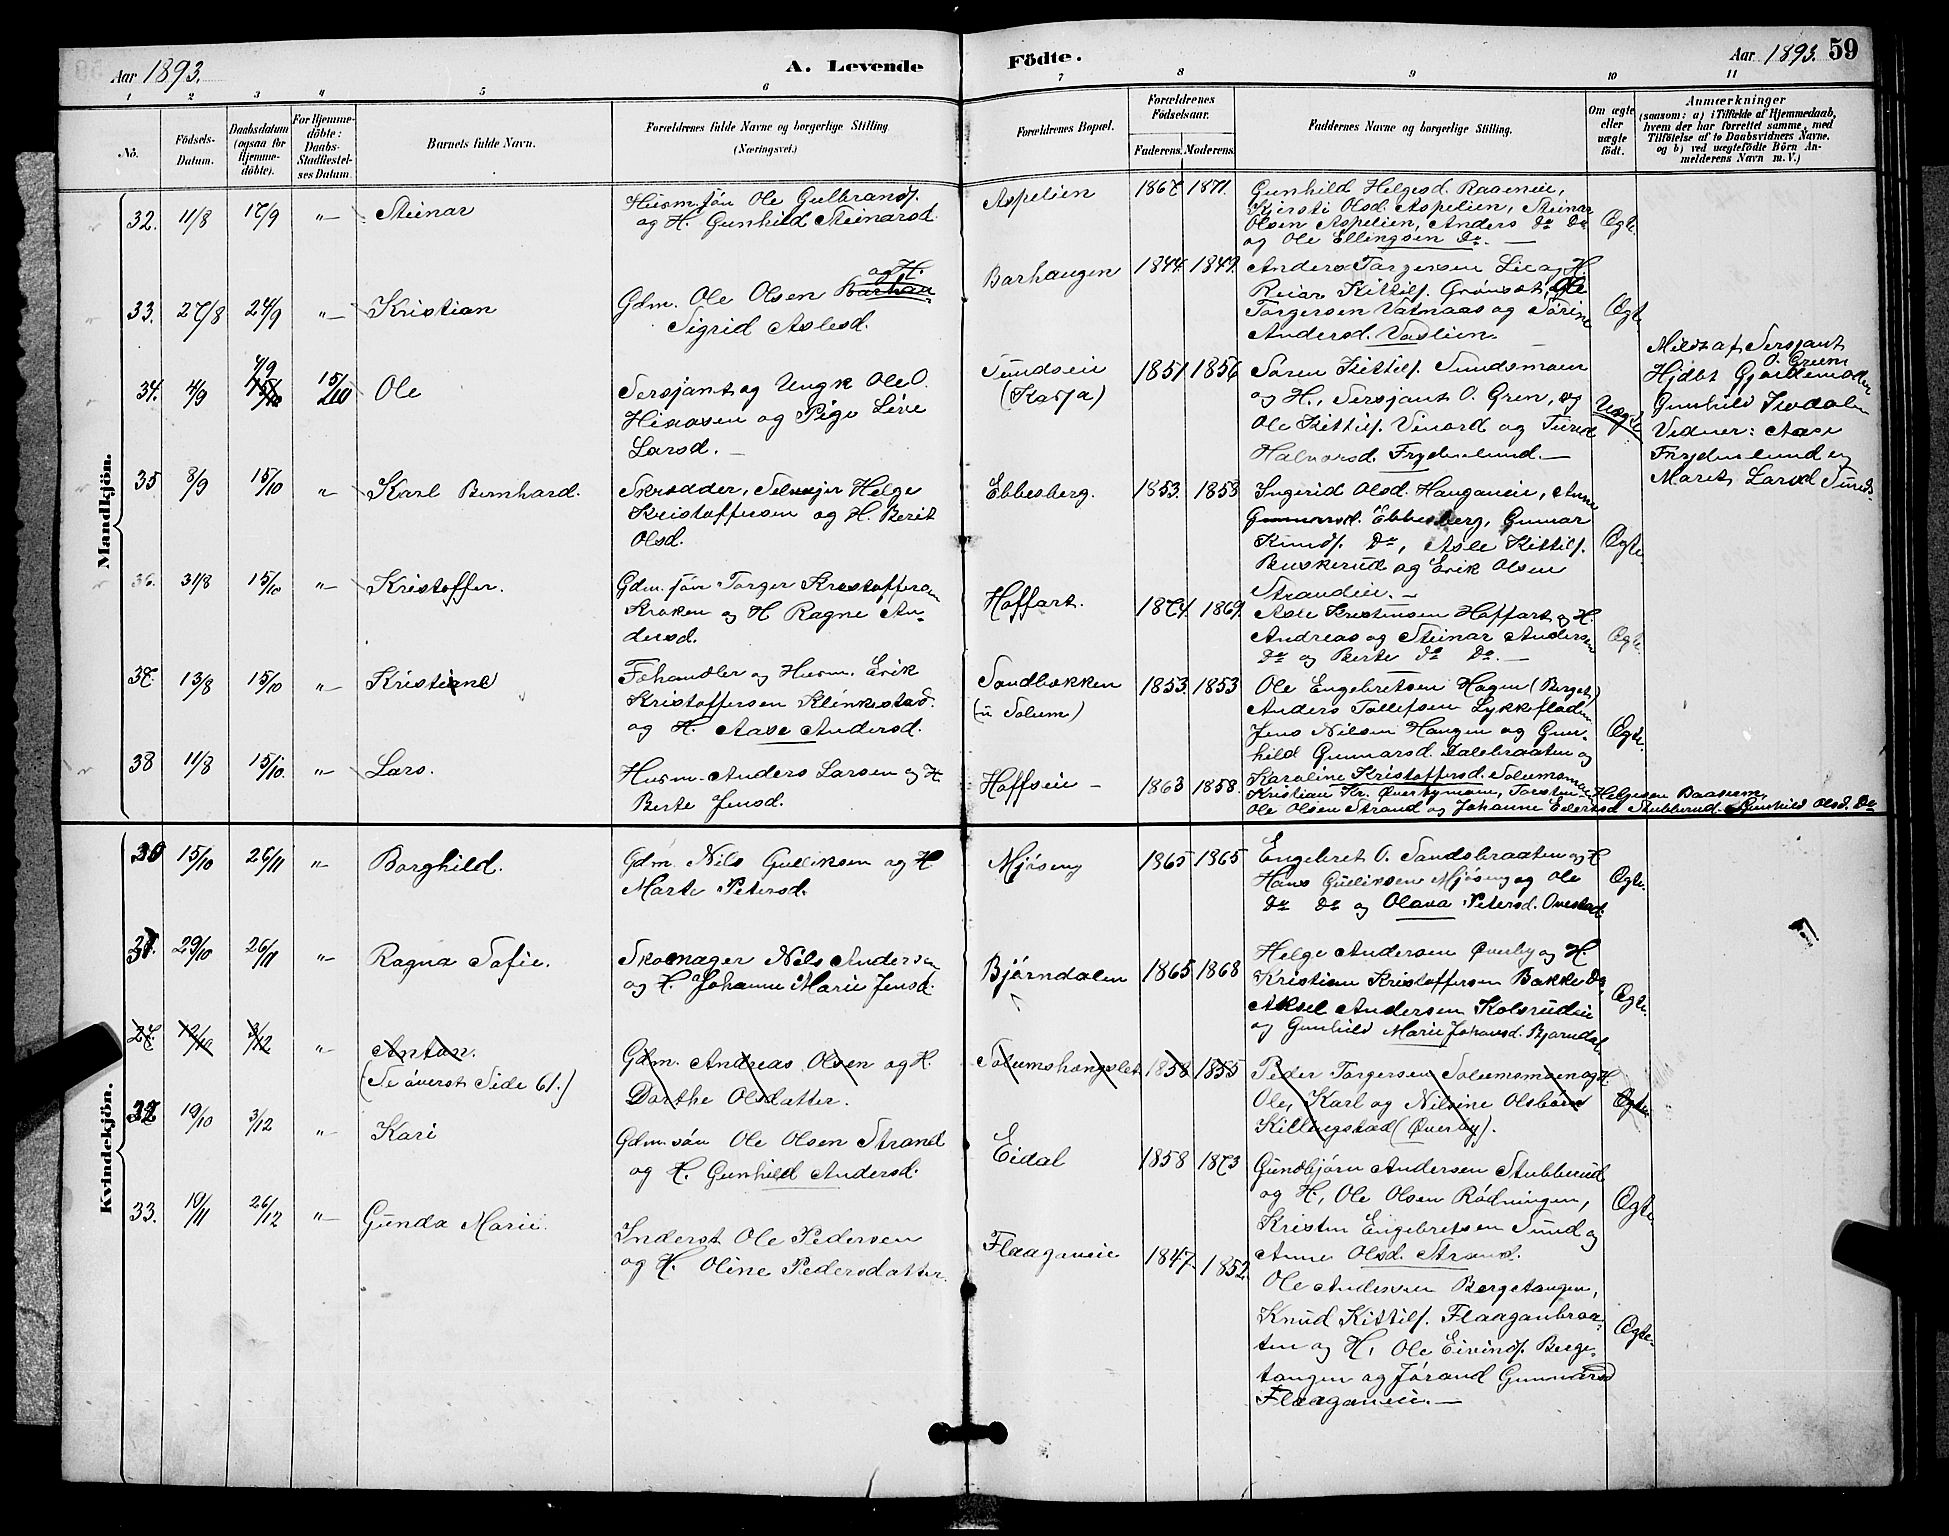 Aar 1893.
A. Levende
Födte.
Aar 1893.
59
1 2 3 4 5 6 7 8 9 10 11
No.
Födsels-
Datum.
Daabsdatum
(ogsaa for
Hjemme-
döbte).
For Hjemme-
döbte:
Daabs-
Stadfæstel-
ses Datum.
Barnets fulde Navn.
Forældrenes fulde Navne og borgerlige Stilling
(Næringsvei.)
Forældrenes Bopæl.
Forældrenes
Födselsaar.
Faderens. Moderens.
Faddernes Navne og borgerlige Stilling.
Om ægte
eller
uægte
födt.
Anmærkninger
(saasom: a) i Tilfælde af Hjemmedaab,
hvem der har forrettet samme, med
Tilföielse af to Daabsvidners Navne.
og b) ved uægtefödte Börn An-
melderens Navn m. V.)
Mandkjön.
32. 11/8 17/9 "— Steinar
Husm. søn Ole Gulbrands.
og H. Gunhild Steinarsd.
Aspelien 1867 1871.
Gunhild Helgesd. Raaeneie,
Kjersti Olsd. Aspelien, Steinar
Olsen Aspelien, Anders Do Do
og Ole Ellingsen Do. —
Ægte.
33. 27/8 24/9 "— Kristian
og H.
Gdm. Ole Olsen Barhau
Sigrid Aslesd.
Barhaugen 1844 1849.
Anders Torgersen Lie og H.
Reiar Kittils. Grönset, Ole
Torgersen Vatnaas og Torine
Andersd. Vaslien.
Ægt
34. 4/9 4/9 15/10 15/10 Ole
Sersjant og Ungk Ole O.
Hiaasen og Pige Live
Larsd. —
Sundseie
(Kasja)
1851 1856
Søren Kittils. Sundsmoen
og H., Sersjant O. Gren, og
Ole Kittils. Vinord og Turid
Halvorsd. Frydenlund. —
Uægte
Meldt af Sersjant
O. Green
Hjdbt Gjordemoder
Gunhild
Vidner: Aase
Frydenlund og
Marit Larsd Sunds.
35 8/9 15/10 " Karl Bernhard.
Skrædder, Selveier Helge
Kristoffersen og H. Berit
Olsd.
Ebbesberg. 1853. 1853
Ingerid Olsd. Hauganeie, Anne
Gunnarsd. Ebbesberg, Gunnar
Knuds. Do, Asle Kittils.
Buskerud og Erik Olsen
Strandeie. —
Ægte.
36. 31/8 15/10 " Kristoffer.
Gdm. søn Torger Kristoffersen
Kroken og H Ragne An-
dersd.
Hoffart. 1874. 1869.
Asle Kristensen Hoffart og H.
Andreas og Steinar Andersen
Do og Berte Do Do. —
Ægte.
37. 13/8 15/10 "— Kristiane
Fehandler og Husm. Erik
Kristoffersen Klinkestad.
og H. Aase Andersd.
Sandbakken
(u Solum)
1853. 1853
Ole Engebretsen Hagen (Berget)
Anders Tollefsen Lykkefladen
Jens Nilsen Haugen og Gun-
hild Gunnarsd. Dalebraaten og
Karoline Kristoffersd. Solumsmoen
Ægte.
38 11/8 15/10. " Lars.
Husm. Anders Larsen og H
Berte Jensd.
Hoffseie — 1863 1858.
Kristian Kr. Øverbymoen, Torsten Helgesen Baasum,
Ole Olsen Strand og Johanne Eilertsd Stubberud. Gunhild Olsd. Do
Kvindekjön.
30 15/10 26/11 " Borghild.
Gdm. Nils Gulliksen og H
Marte Petersd.
Mjösing 1865 1865
Engebret O. Sandsbraaten og H
Hans Gulliksen Mjösing og Ole
Do Do og Olava Petersd. Ovestad.
Ægte.
31. 29/10 26/11 "— Ragna Sofie.
Skomager Nils Andersen
og H. Johanne Marie Jensd.
Bjørndalen 1865 1868
Helge Andersen Øverby og H.
Kristian Kristoffersen Bakke Do,
Aksel Andersen Kolsrudeie
og Gunhild Marie Johansd. Bjørndal.
Ægte.
27. 12/10 3/12 " Anton.
(Se øverst Side 61.)
Gdm. Andreas Olsen og H.
Dorthe Olsdatter.
Solumshangslet 1858 1855
Peder Torgersen Solumsmoen og H.
Ole, Karl og Nilsine Olsbörn
Killingstad (Øverby).
Ægte
32 19/10 3/12 " Kari
Gdm. søn Ole Olsen Strand
og H. Gunhild Andersd.
Eidal 1858 1873
Gundbjørn Andersen Stubberud
og H., Ole Olsen Rödningen,
Kristen Engebretsen Sund og
Anne Olsd. Strand.
Ægte
33. 19/11 26/12 "— Gunda Marie.
Inderst Ole Pedersen
og H. Oline Pedersdatter.
Flaaganeie 1847. 1852.
Ole Andersen Bergetangen,
Knud Kittils. Flaaganbraa-
ten og H, Ole Eivinds. Berge-
tangen og Jørand Gunnarsd
Flaaganeie. —
Ægte